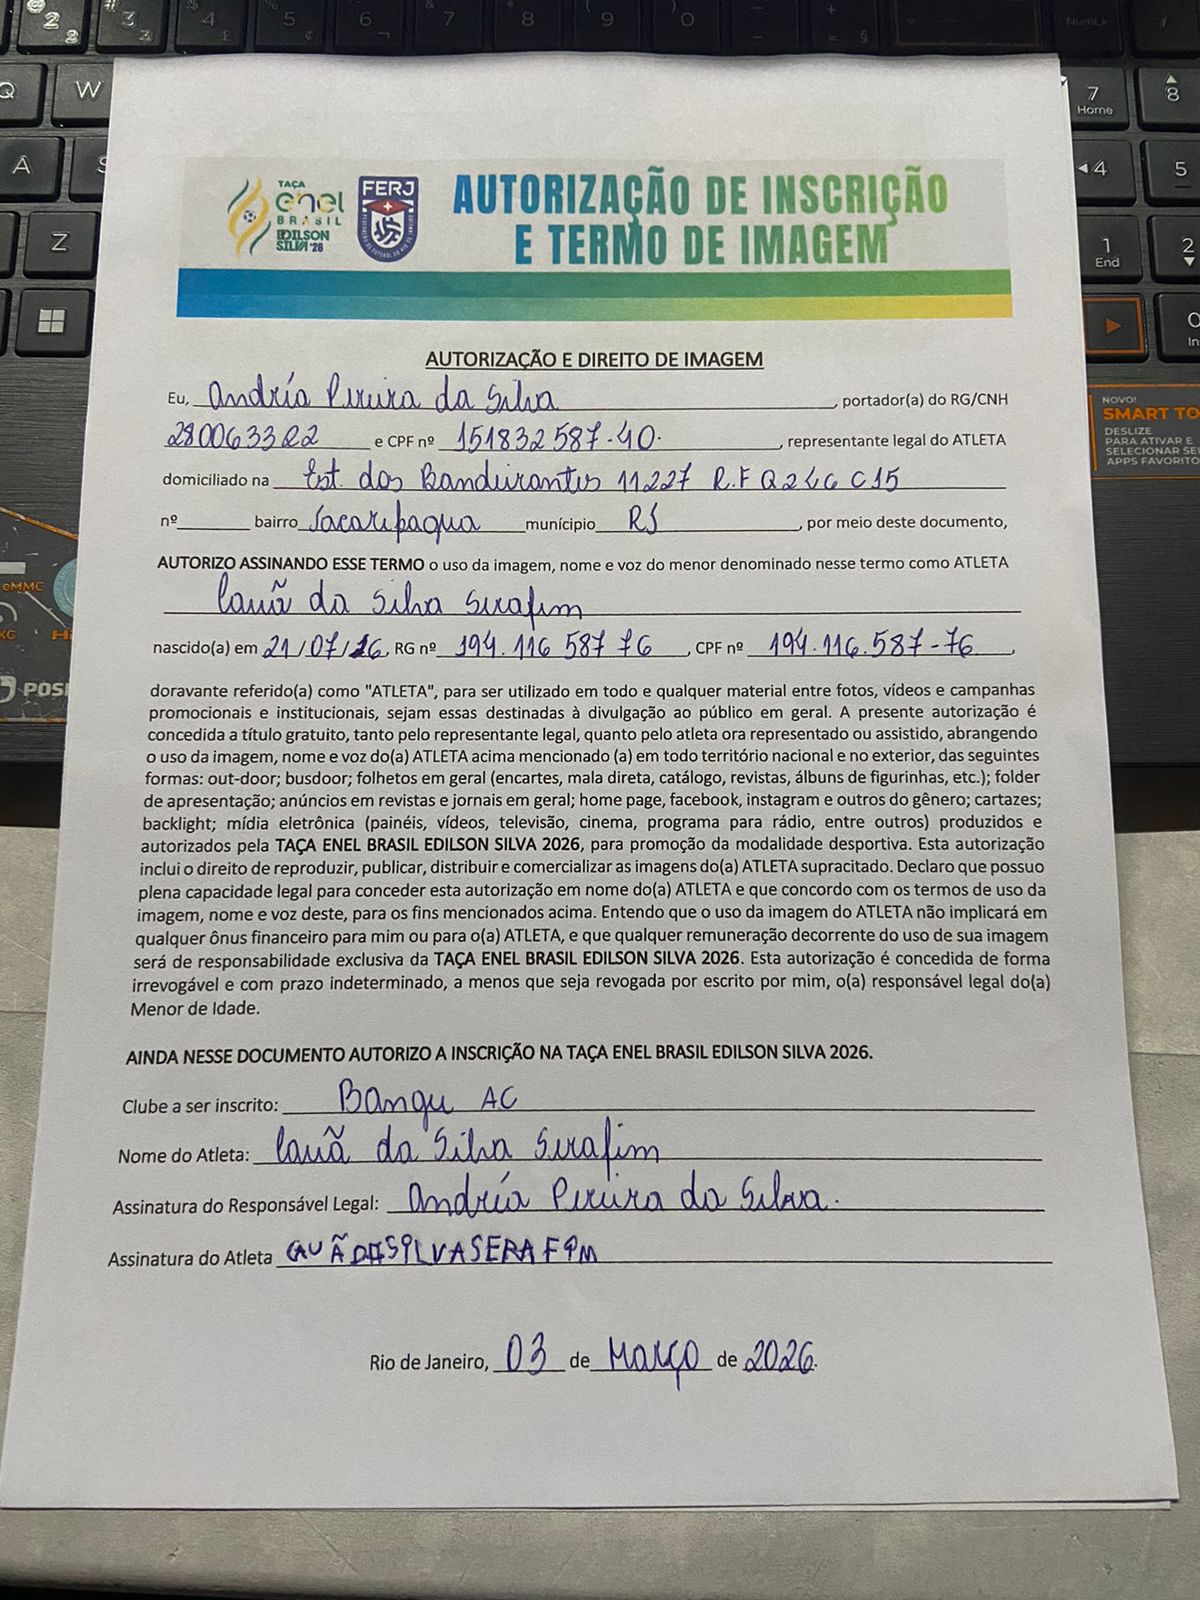 TAÇA
enel
BRASIL
EDILSON
SILVA '26
FERJ
AUTORIZAÇÃO DE INSCRIÇÃO
E TERMO DE IMAGEM
AUTORIZAÇÃO E DIREITO DE IMAGEM
Eu, Andréa Pereira da Silva, portador(a) do RG/CNH
280063322 e CPF nº 151832587-40. , representante legal do ATLETA
domiciliado na Est. dos Bandeirantes 11227 R.F Q246 C15
nº bairro Jacarepagua município RJ , por meio deste documento,
AUTORIZO ASSINANDO ESSE TERMO o uso da imagem, nome e voz do menor denominado nesse termo como ATLETA
Cauã da Silva Serafim
nascido(a) em 21/07/16, RG nº 194.116 587 76 , CPF nº 194.116.587-76 ,
doravante referido(a) como "ATLETA", para ser utilizado em todo e qualquer material entre fotos, vídeos e campanhas
promocionais e institucionais, sejam essas destinadas à divulgação ao público em geral. A presente autorização é
concedida a título gratuito, tanto pelo representante legal, quanto pelo atleta ora representado ou assistido, abrangendo
o uso da imagem, nome e voz do(a) ATLETA acima mencionado (a) em todo território nacional e no exterior, das seguintes
formas: out-door; busdoor; folhetos em geral (encartes, mala direta, catálogo, revistas, álbuns de figurinhas, etc.); folder
de apresentação; anúncios em revistas e jornais em geral; home page, facebook, instagram e outros do gênero; cartazes;
backlight; mídia eletrônica (painéis, vídeos, televisão, cinema, programa para rádio, entre outros) produzidos e
autorizados pela TAÇA ENEL BRASIL EDILSON SILVA 2026, para promoção da modalidade desportiva. Esta autorização
inclui o direito de reproduzir, publicar, distribuir e comercializar as imagens do(a) ATLETA supracitado. Declaro que possuo
plena capacidade legal para conceder esta autorização em nome do(a) ATLETA e que concordo com os termos de uso da
imagem, nome e voz deste, para os fins mencionados acima. Entendo que o uso da imagem do ATLETA não implicará em
qualquer ônus financeiro para mim ou para o(a) ATLETA, e que qualquer remuneração decorrente do uso de sua imagem
será de responsabilidade exclusiva da TAÇA ENEL BRASIL EDILSON SILVA 2026. Esta autorização é concedida de forma
irrevogável e com prazo indeterminado, a menos que seja revogada por escrito por mim, o(a) responsável legal do(a)
Menor de Idade.
AINDA NESSE DOCUMENTO AUTORIZO A INSCRIÇÃO NA TAÇA ENEL BRASIL EDILSON SILVA 2026.
Clube a ser inscrito: Bangu AC
Nome do Atleta: Cauã da Silva Serafim
Assinatura do Responsável Legal: Andréa Pereira da Silva.
Assinatura do Atleta CAUÃ DA SILVA SERAFIM
Rio de Janeiro, 03 de Março de 2026.
NOVO!
SMART TO
DESLIZE
PARA ATIVAR E
SELECIONAR SE
APPS FAVORITO
eMMC
Q
W
A
Z
7
Home
8
4
5
1
End
2